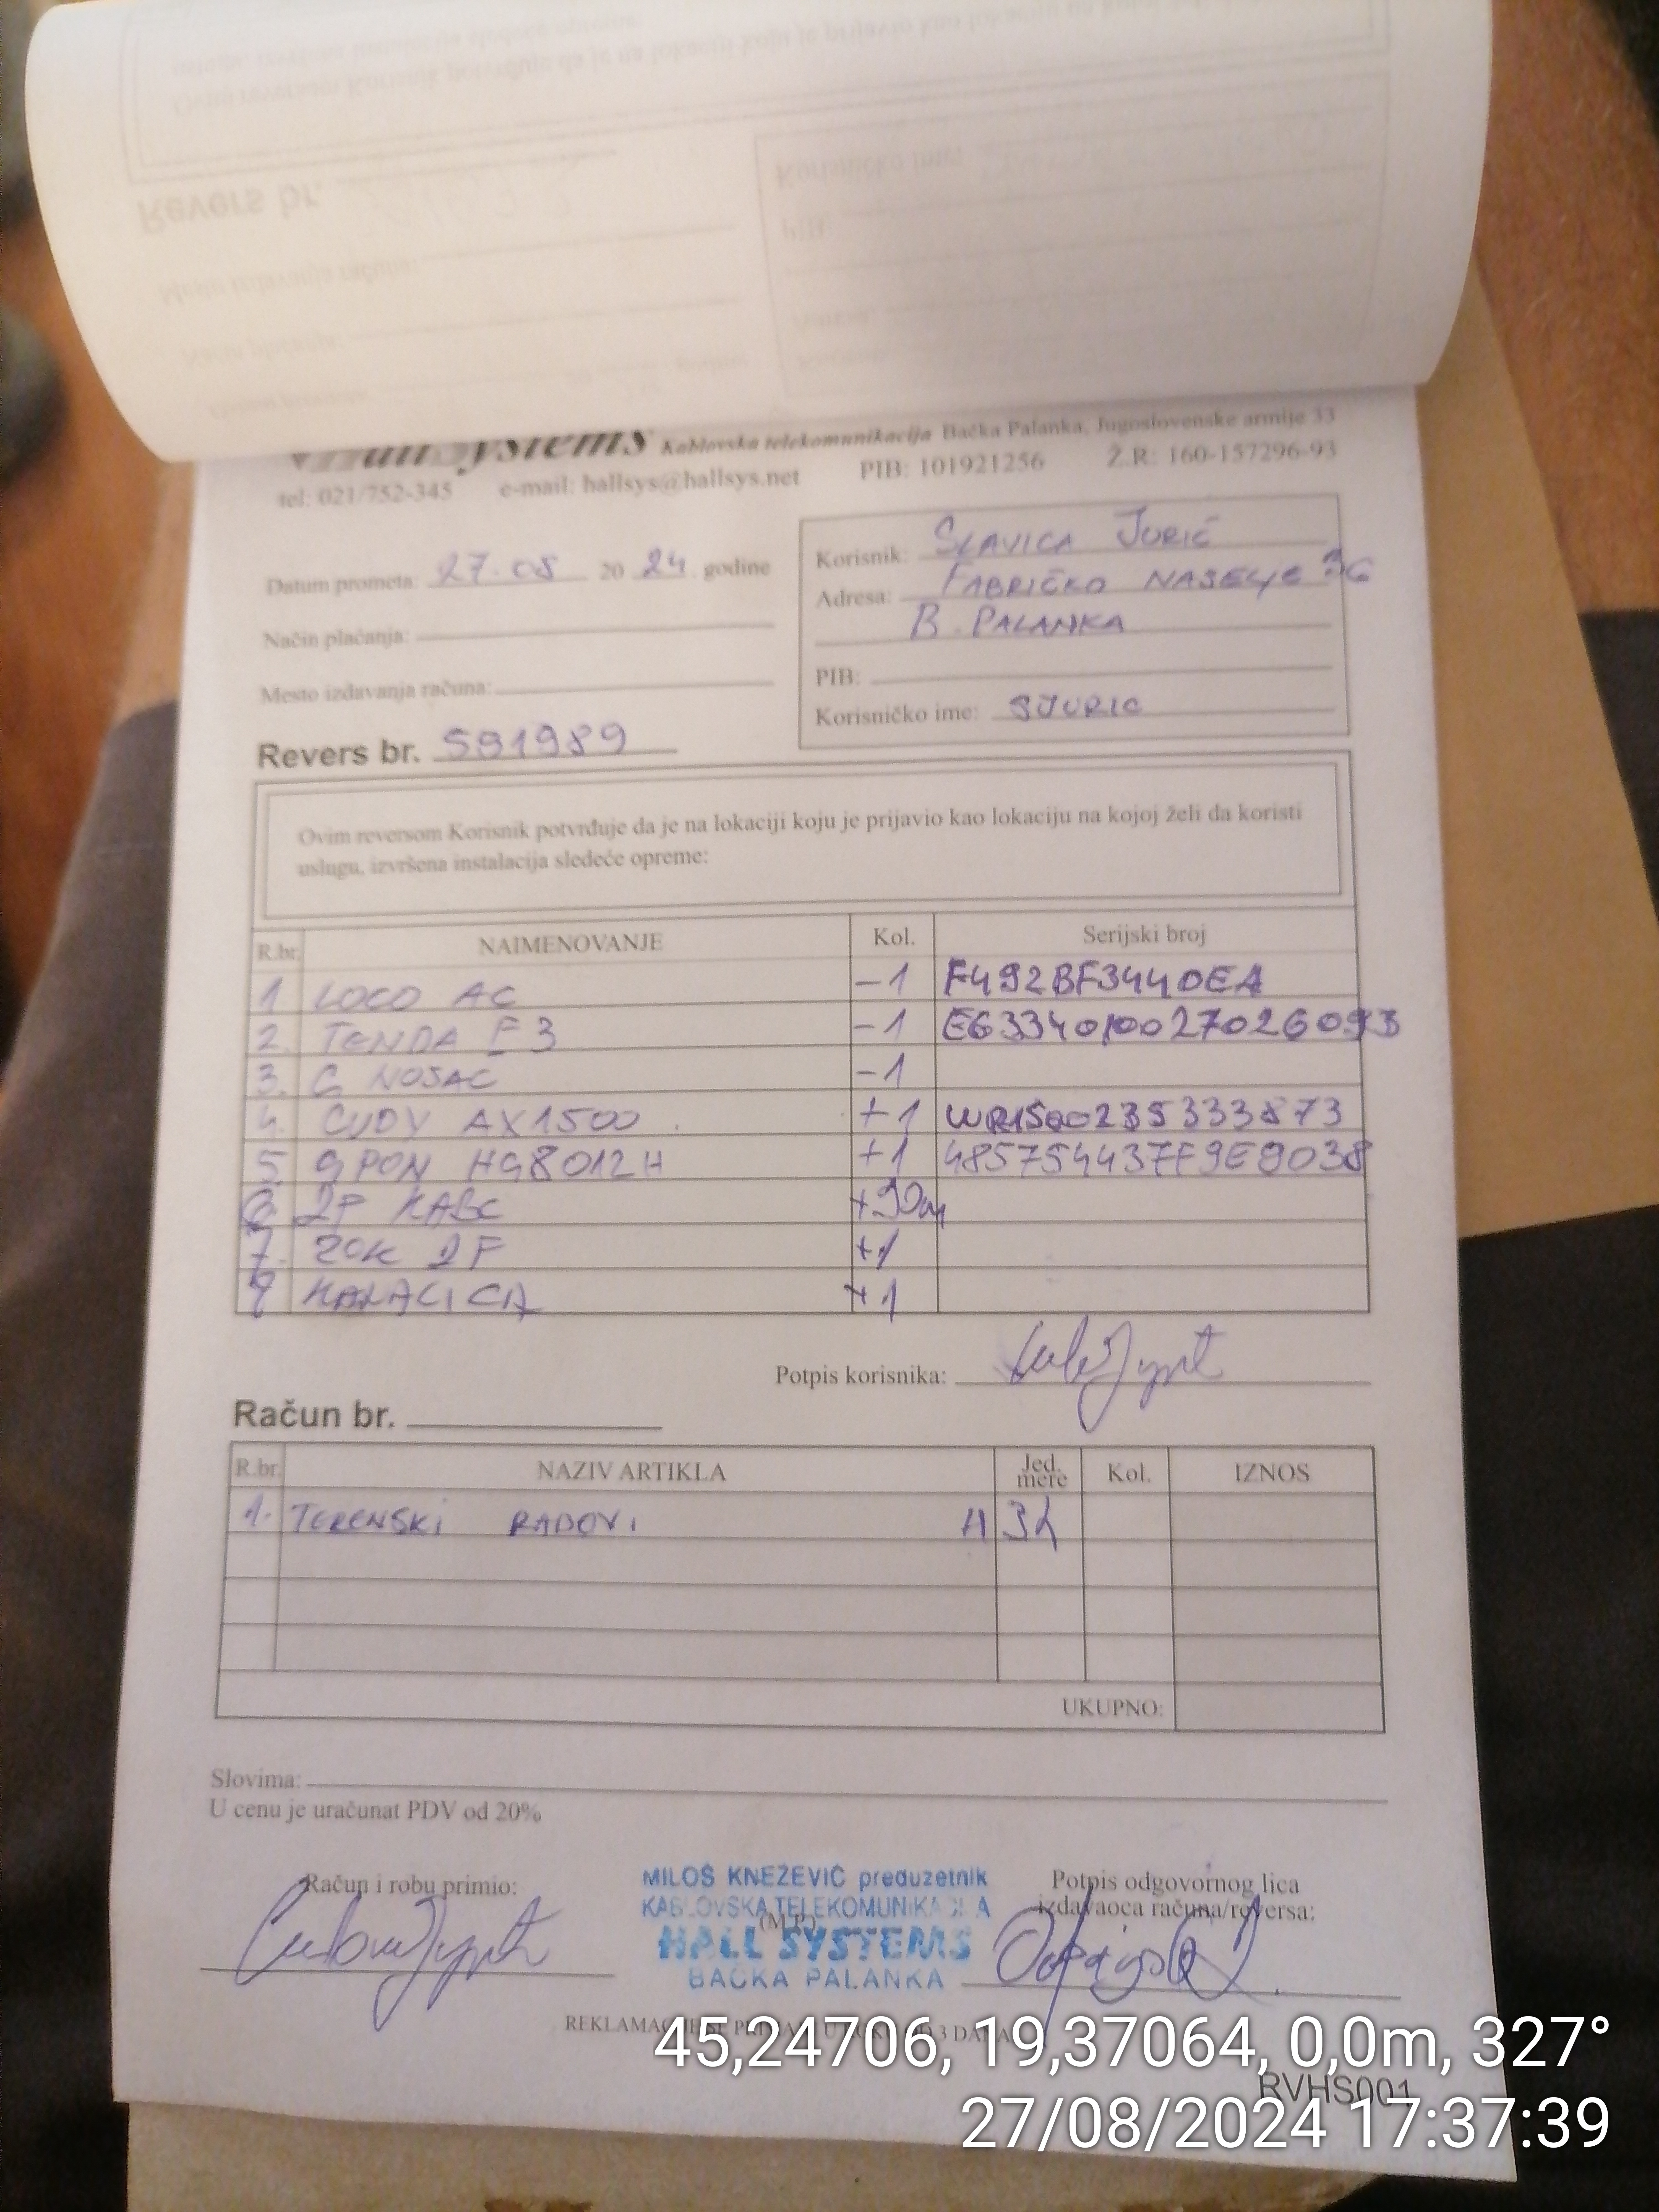 Hall Systems Kablovska telekomunikacija Bačka Palanka, Jugoslovenske armije 33
tel: 021/752-345 e-mail: hallsys@hallsys.net PIB: 101921256 Ž.R: 160-157296-93
Datum prometa: 27.08 20 24 godine
Način plaćanja:
Mesto izdavanja računa:
Korisnik: SLAVICA JURIĆ
Adresa: FABRIČKO NASELJE 36
B. PALANKA
PIB:
Korisničko ime: SJURIC
Revers br. 591989
Ovim reversom Korisnik potvrđuje da je na lokaciji koju je prijavio kao lokaciju na kojoj želi da koristi
uslugu, izvršena instalacija sledeće opreme:
R.br. NAIMENOVANJE Kol. Serijski broj
1 LOCO AC -1 F492BF3440EA
2. TENDA F3 -1
3. G NOSAC -1
4. CUDY AX1500 +1 WR1500235333873
5. GPON HG8012H +1 485754437F9E9038
6 2F KABL +90m
7. ZOK 2F +1
+1
Potpis korisnika:
Račun br.
R.br. NAZIV ARTIKLA Jed. mere Kol. IZNOS
1. TERENSKI RADOVI H
UKUPNO:
Slovima:
U cenu je uračunat PDV od 20%
Račun i robu primio:
MILOŠ KNEŽEVIĆ preduzetnik
KABLOVSKA TELEKOMUNIKACIJA
(M.P.)
HALL SYSTEMS
BAČKA PALANKA
Potpis odgovornog lica
izdavaoca računa/reversa:
45,24706, 19,37064, 0,0m, 327°
RVHS001
27/08/2024 17:37:39